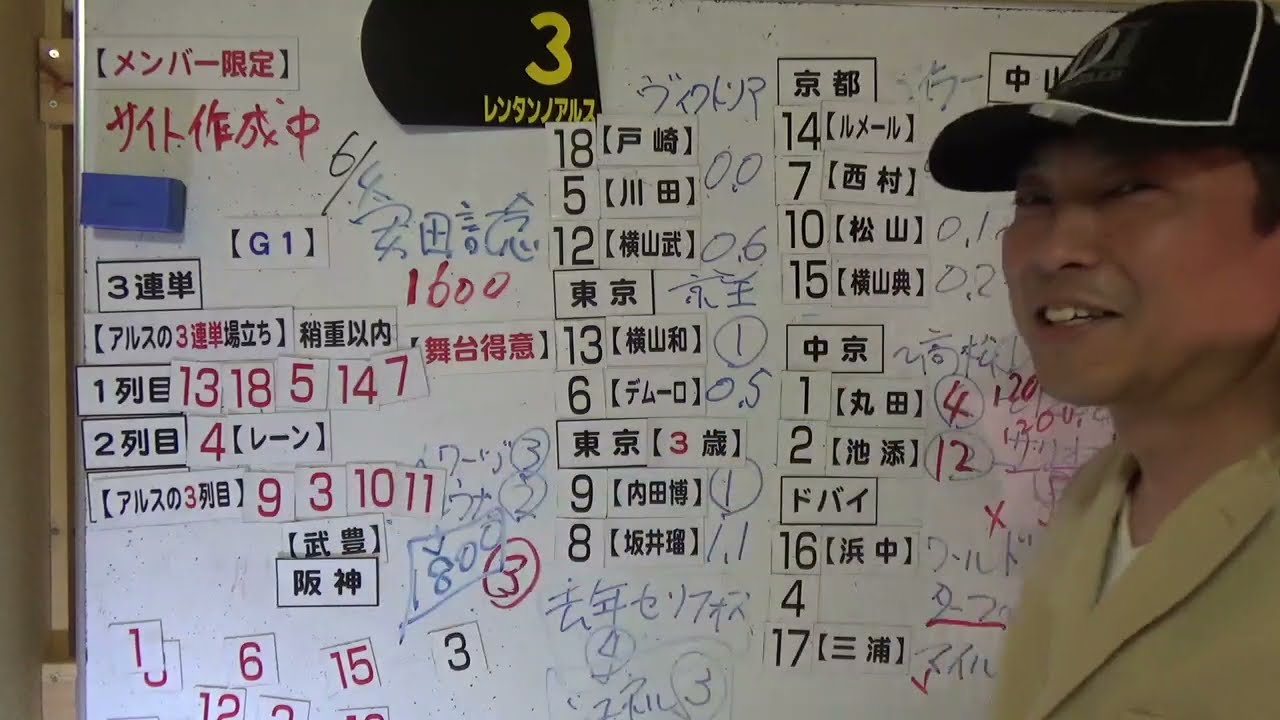 【メンバー限定】
サイト作成中
3
レンタンノアルス
6/4
【G1】
安田記念
1600
3連単
【アルスの3連単場立ち】
稍重以内
【舞台得意】
1列目 13 18 5 14 7
2列目 4【レーン】
【アルスの3列目】 9 3 10 11
【武豊】
阪神
1800
③
1
6
15
3
12
ヴィクトリア
18【戸崎】
5【川田】 0.0
12【横山武】 0.6
東京 京王
13【横山和】 ①
6【デムーロ】 0.5
東京【3歳】
9【内田博】 ①
8【坂井瑠】 1.1
去年セリフォス
④
③
京都
14【ルメール】
7【西村】
10【松山】 0.1
15【横山典】 0.2
中京
1【丸田】 ④
2【池添】 ⑫
ドバイ
16【浜中】 ワールド
4 ターフ
17【三浦】 マイル
中山